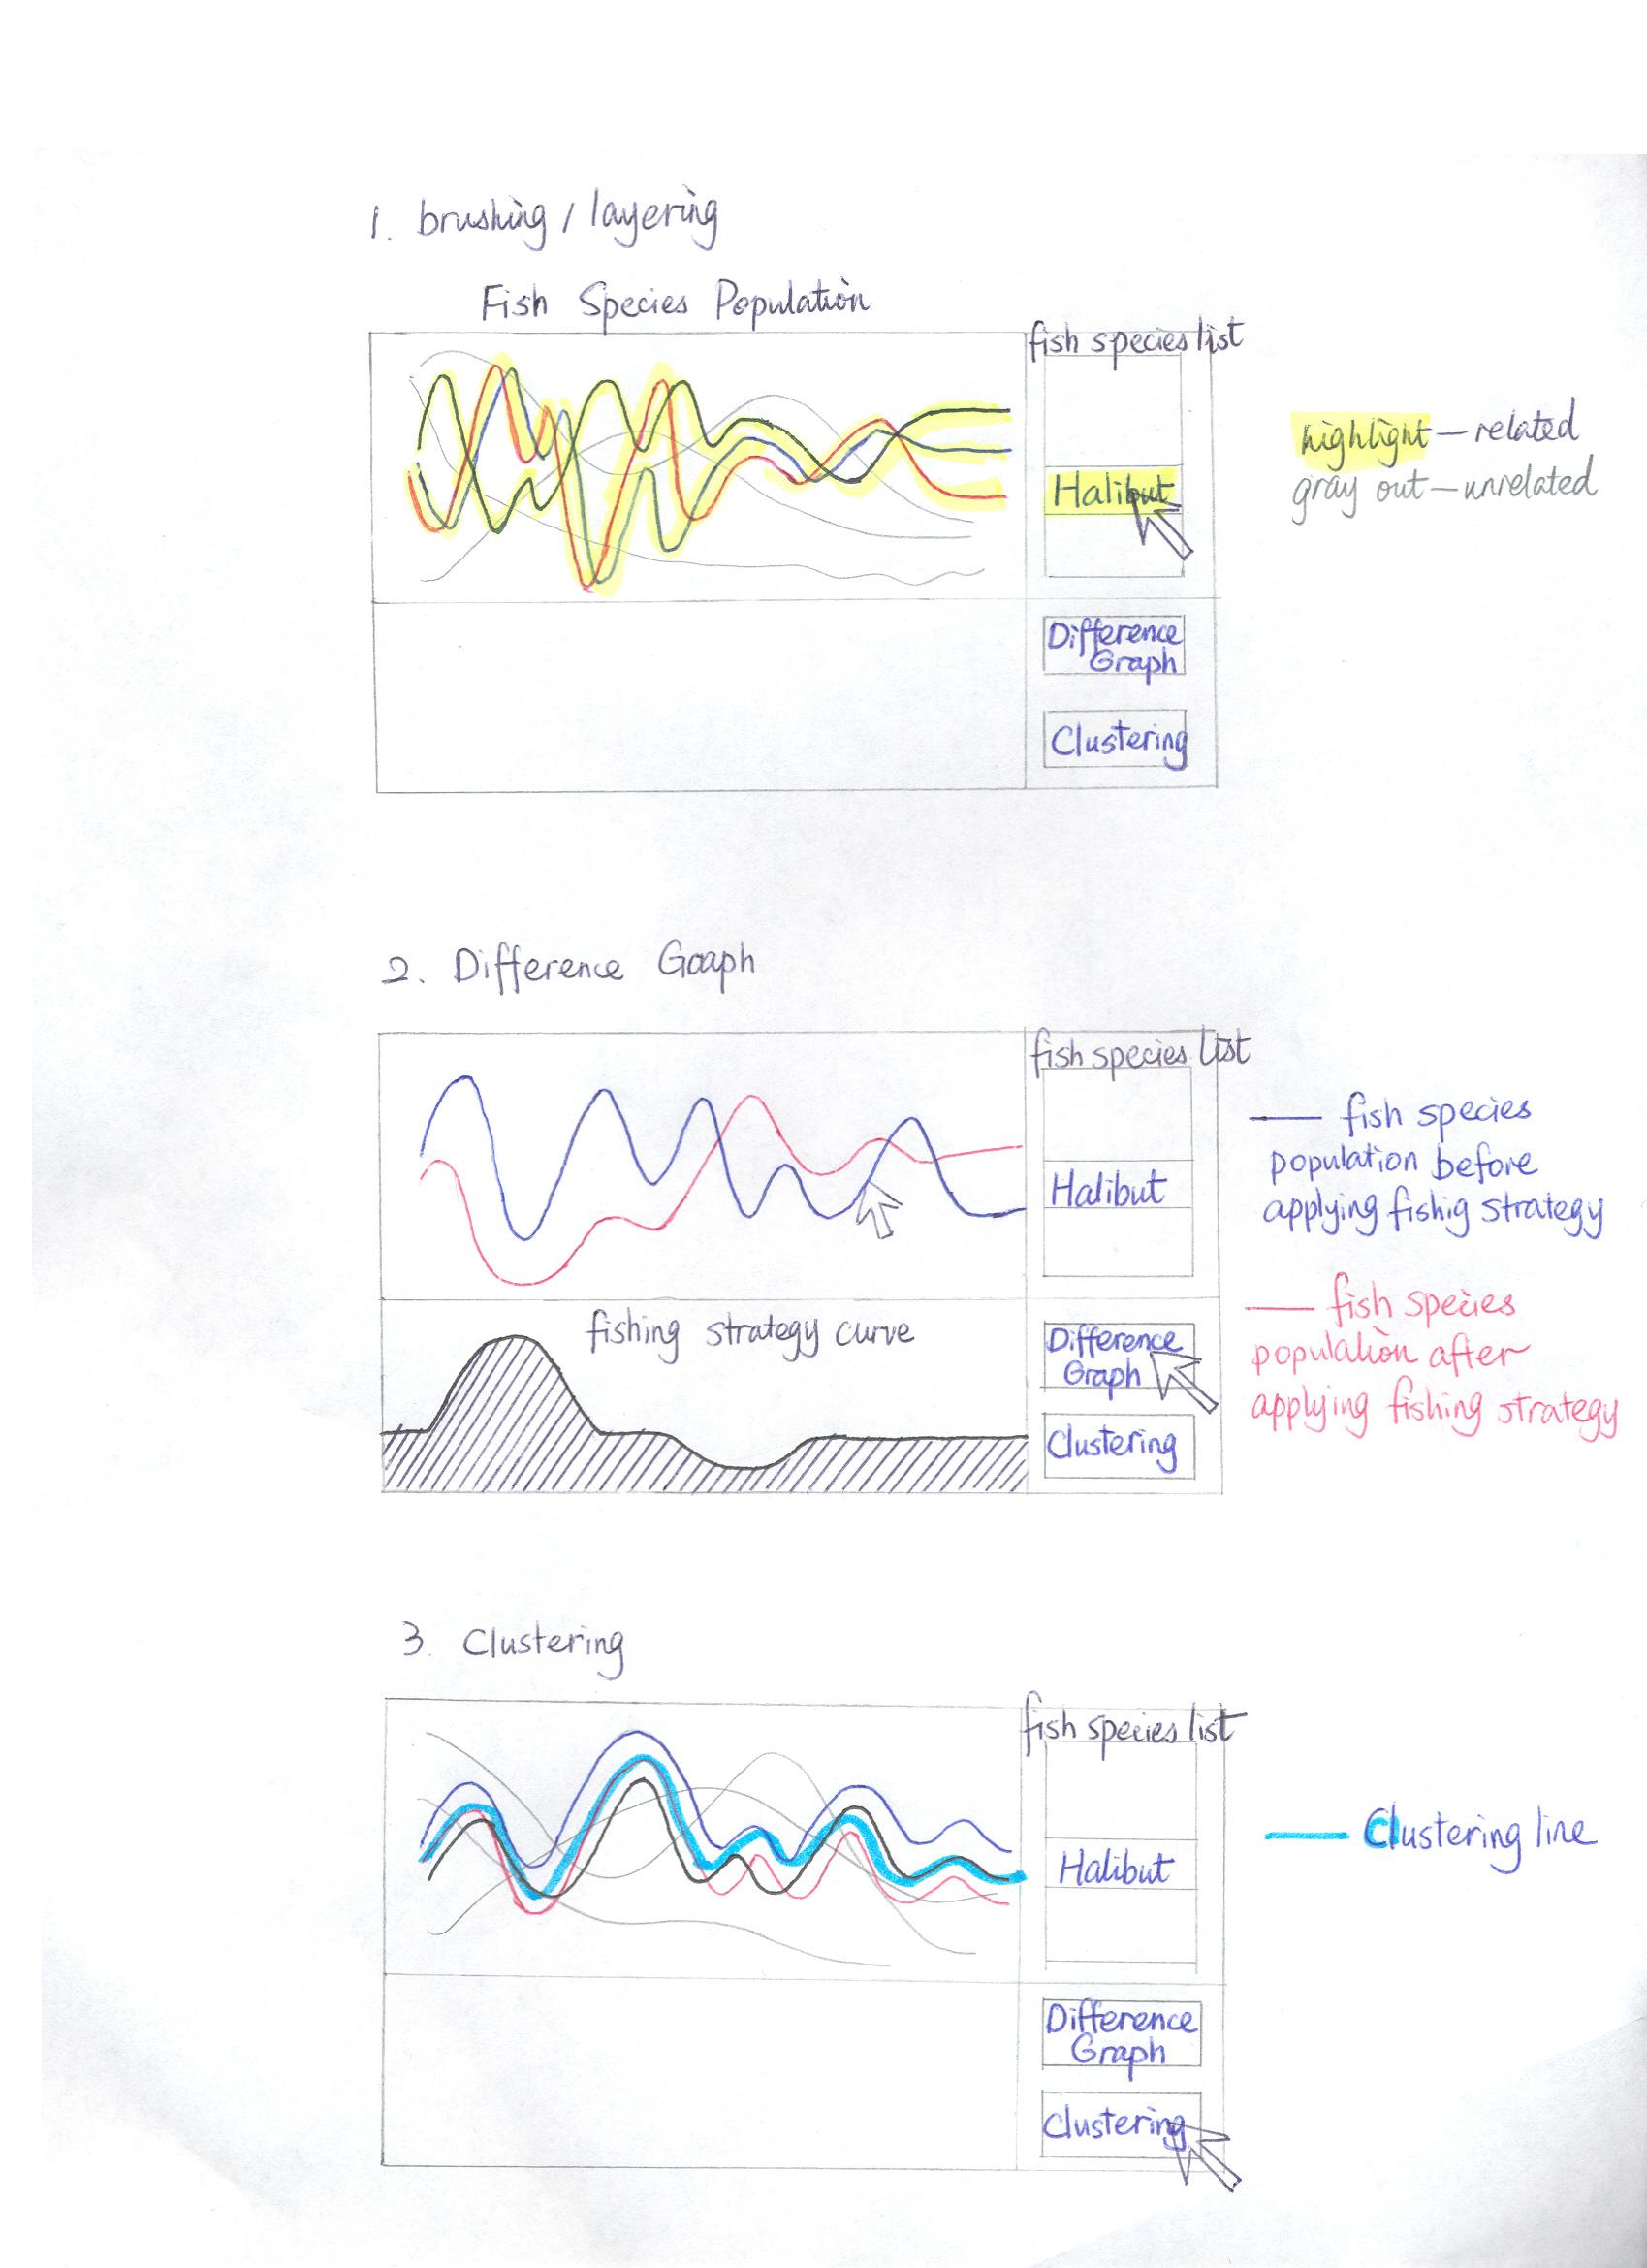 1. brushing / layering
Fish Species Population
fish species list
Halibut
highlight — related
gray out — unrelated
Difference
Graph
Clustering
2. Difference Goaph
fish species list
Halibut
— fish species
population before
applying fishig strategy
— fish species
population after
applying fishing strategy
fishing strategy curve
Difference
Graph
Clustering
3. Clustering
fish species list
Halibut
— Clustering line
Difference
Graph
Clustering